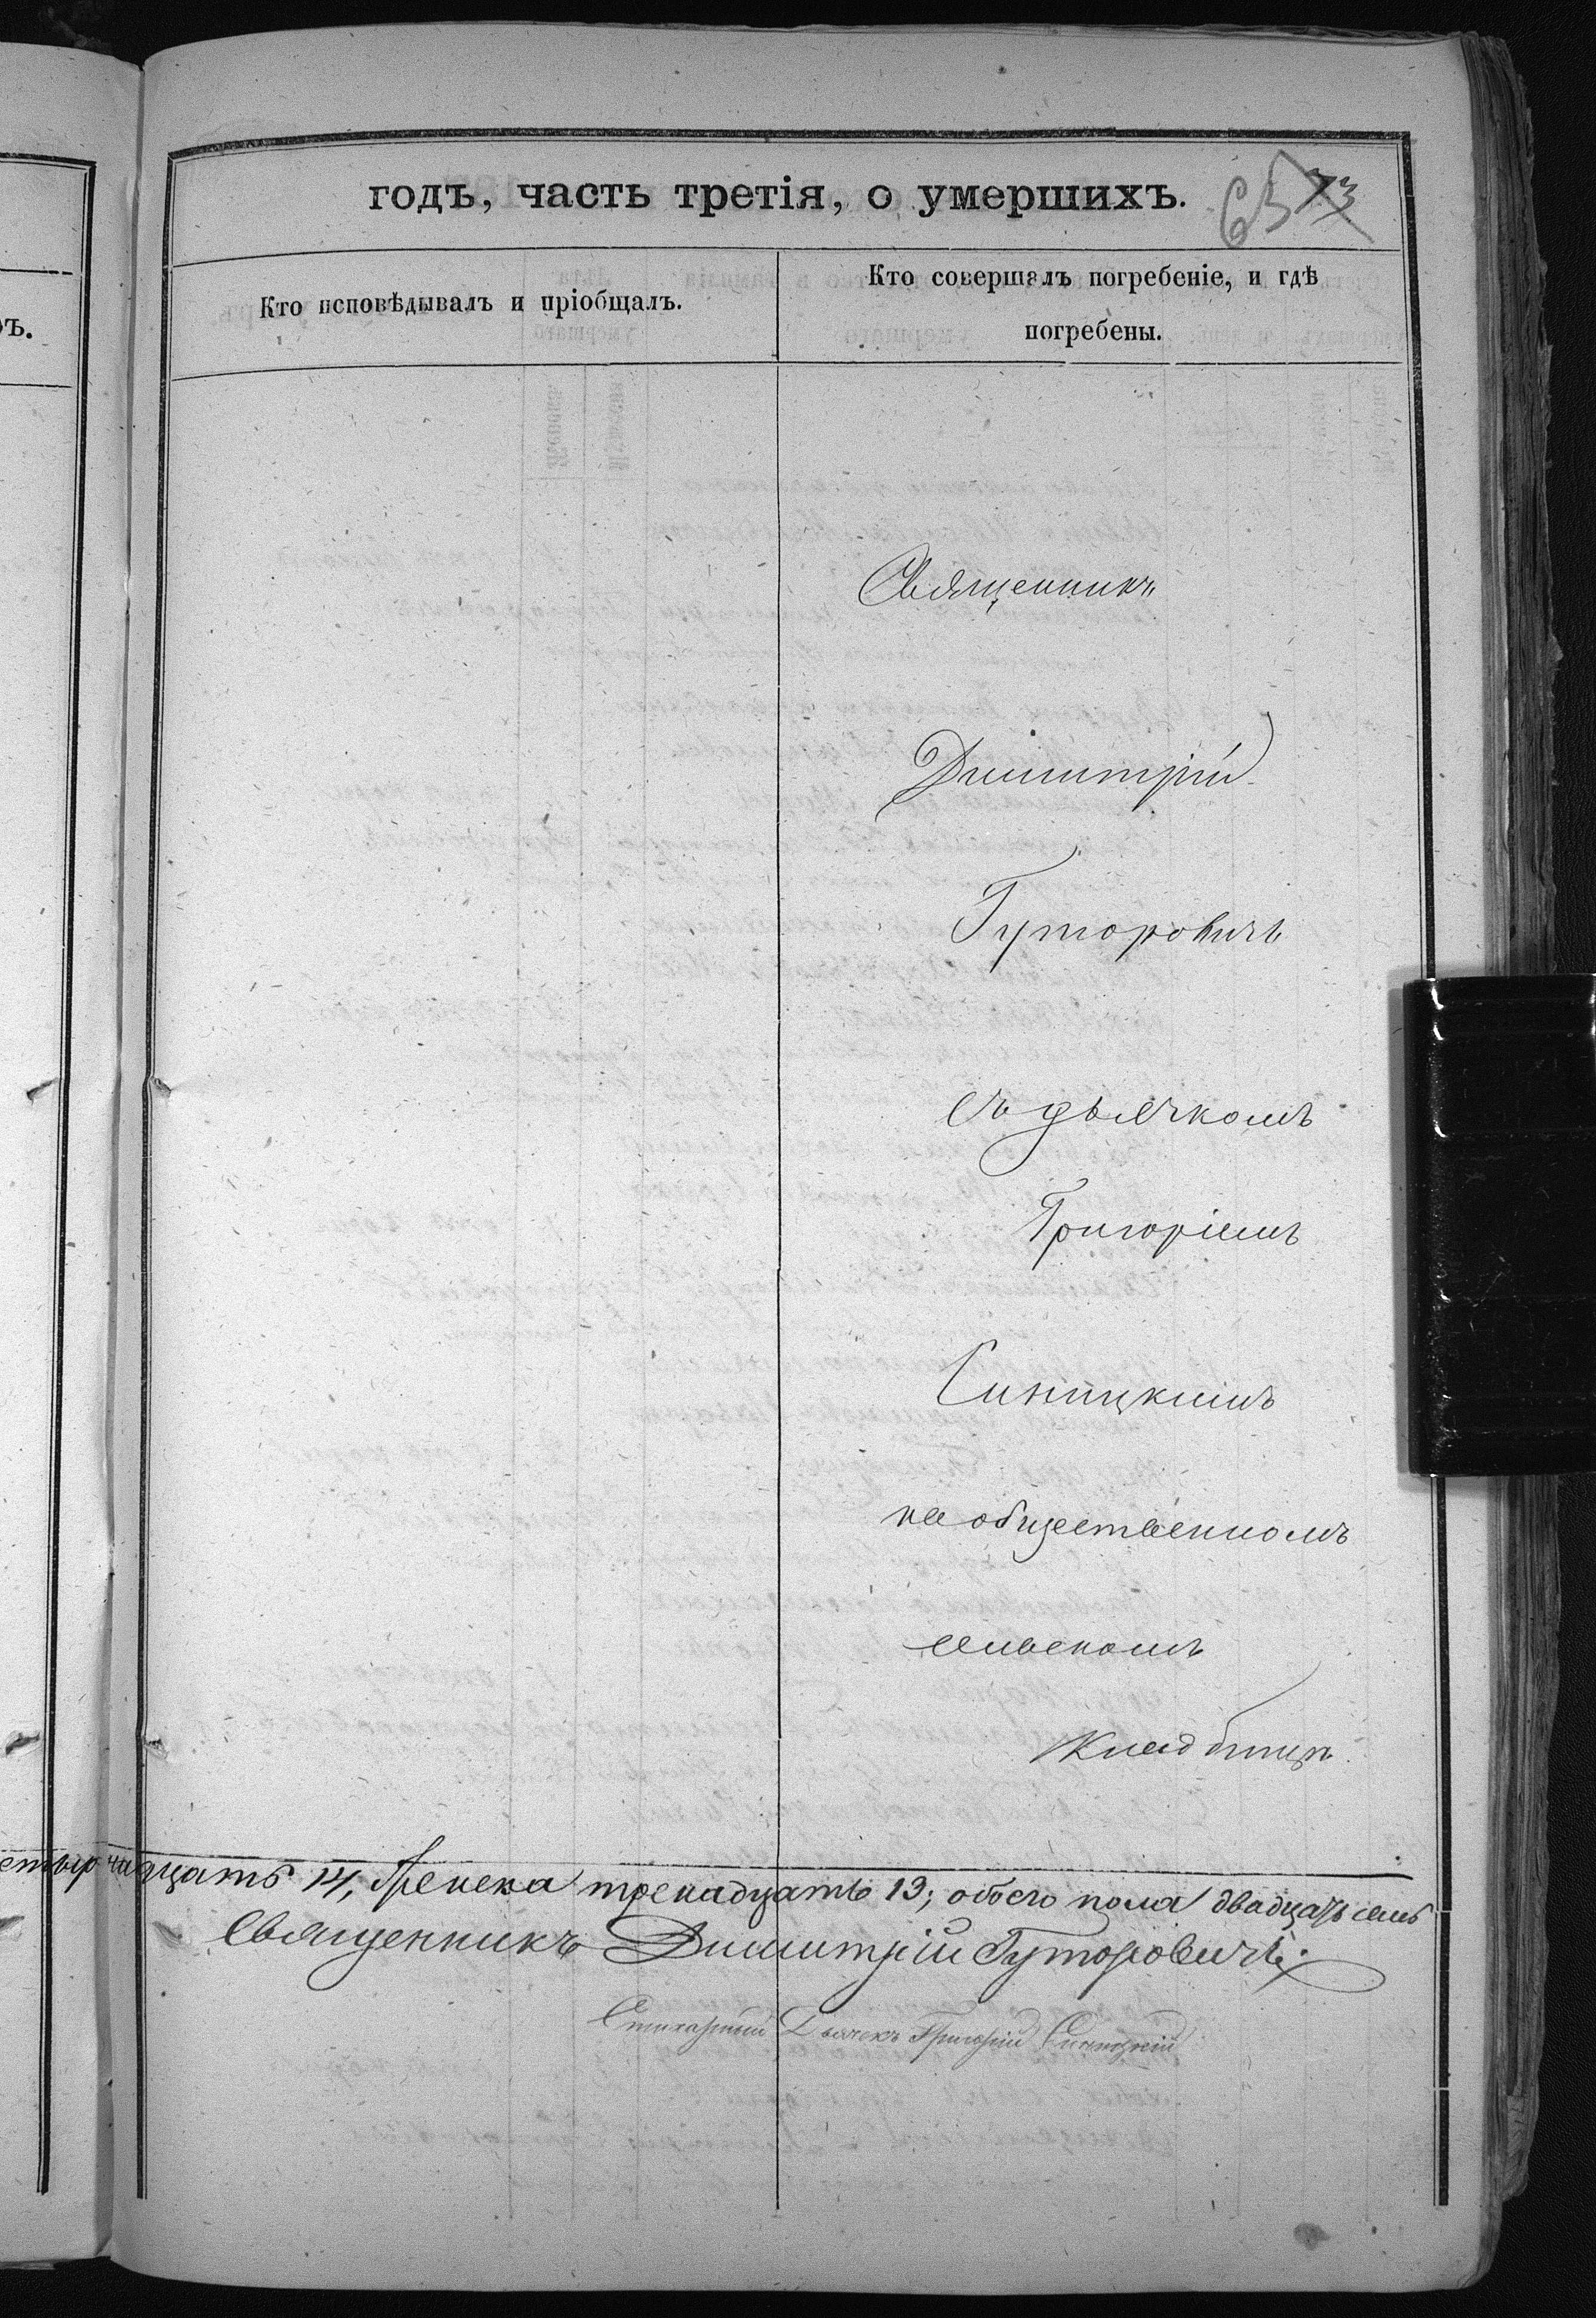 годъ, часть третія, о умершихъ. 65 73
Кто исповѣдывалъ и пріобщалъ.
Кто совершалъ погребеніе, и гдѣ
погребены.
ъ.
Священникъ
Димитрій
Гуторовичъ
съ дьячкомъ
Григоріемъ
Синицкимъ
на общественномъ
сельскомъ
кладбищѣ
етырнадцать 14, Женска тренадцать 13; обоего пола двадцать семь
Священникъ Димитрій Гуторовичъ.
Стихарный Дьячекъ Григорій Синицкій